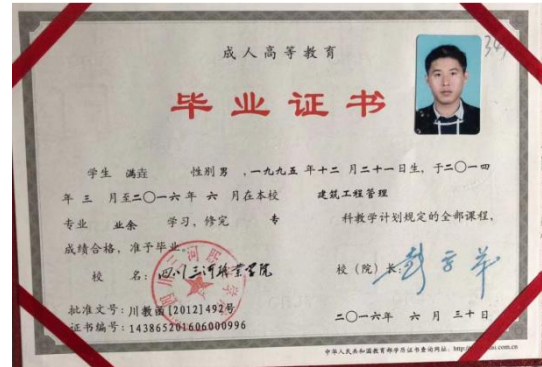 成人高等教育
毕业证书
学生 满垚 性别 男 ，一九九五 年 十二 月 二十一 日生，于二〇一四
年 三 月至二〇一六年 六 月在本校 建筑工程管理
专业 业余 学习、修完 专 科教学计划规定的全部课程，
成绩合格，准予毕业。
校 名：四川三河职业学院 校（院）长：
批准文号：川教函[2012]492号
证书编号：143865201606000996 二〇一六年 六 月 三十日
中华人民共和国教育部学历证书查询网址：